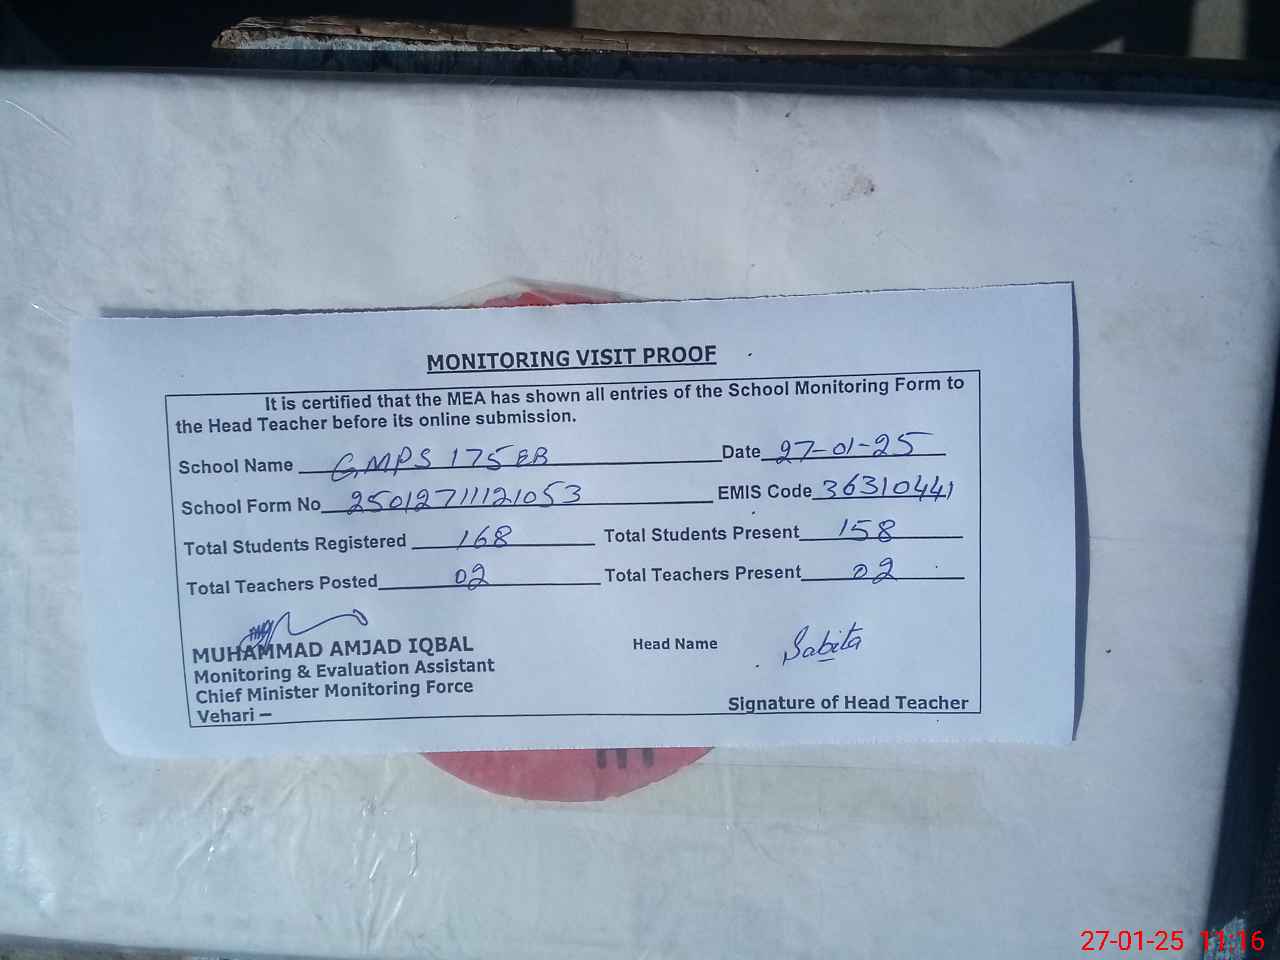 MONITORING VISIT PROOF
It is certified that the MEA has shown all entries of the School Monitoring Form to
the Head Teacher before its online submission.
School Name GMPS 175 EB Date 27-01-25
School Form No 25012711121053 EMIS Code 36310441
Total Students Registered 168 Total Students Present 158
Total Teachers Posted 02 Total Teachers Present 02
MUHAMMAD AMJAD IQBAL Head Name Sabita
Monitoring & Evaluation Assistant
Chief Minister Monitoring Force
Vehari – Signature of Head Teacher
27-01-25 11:16